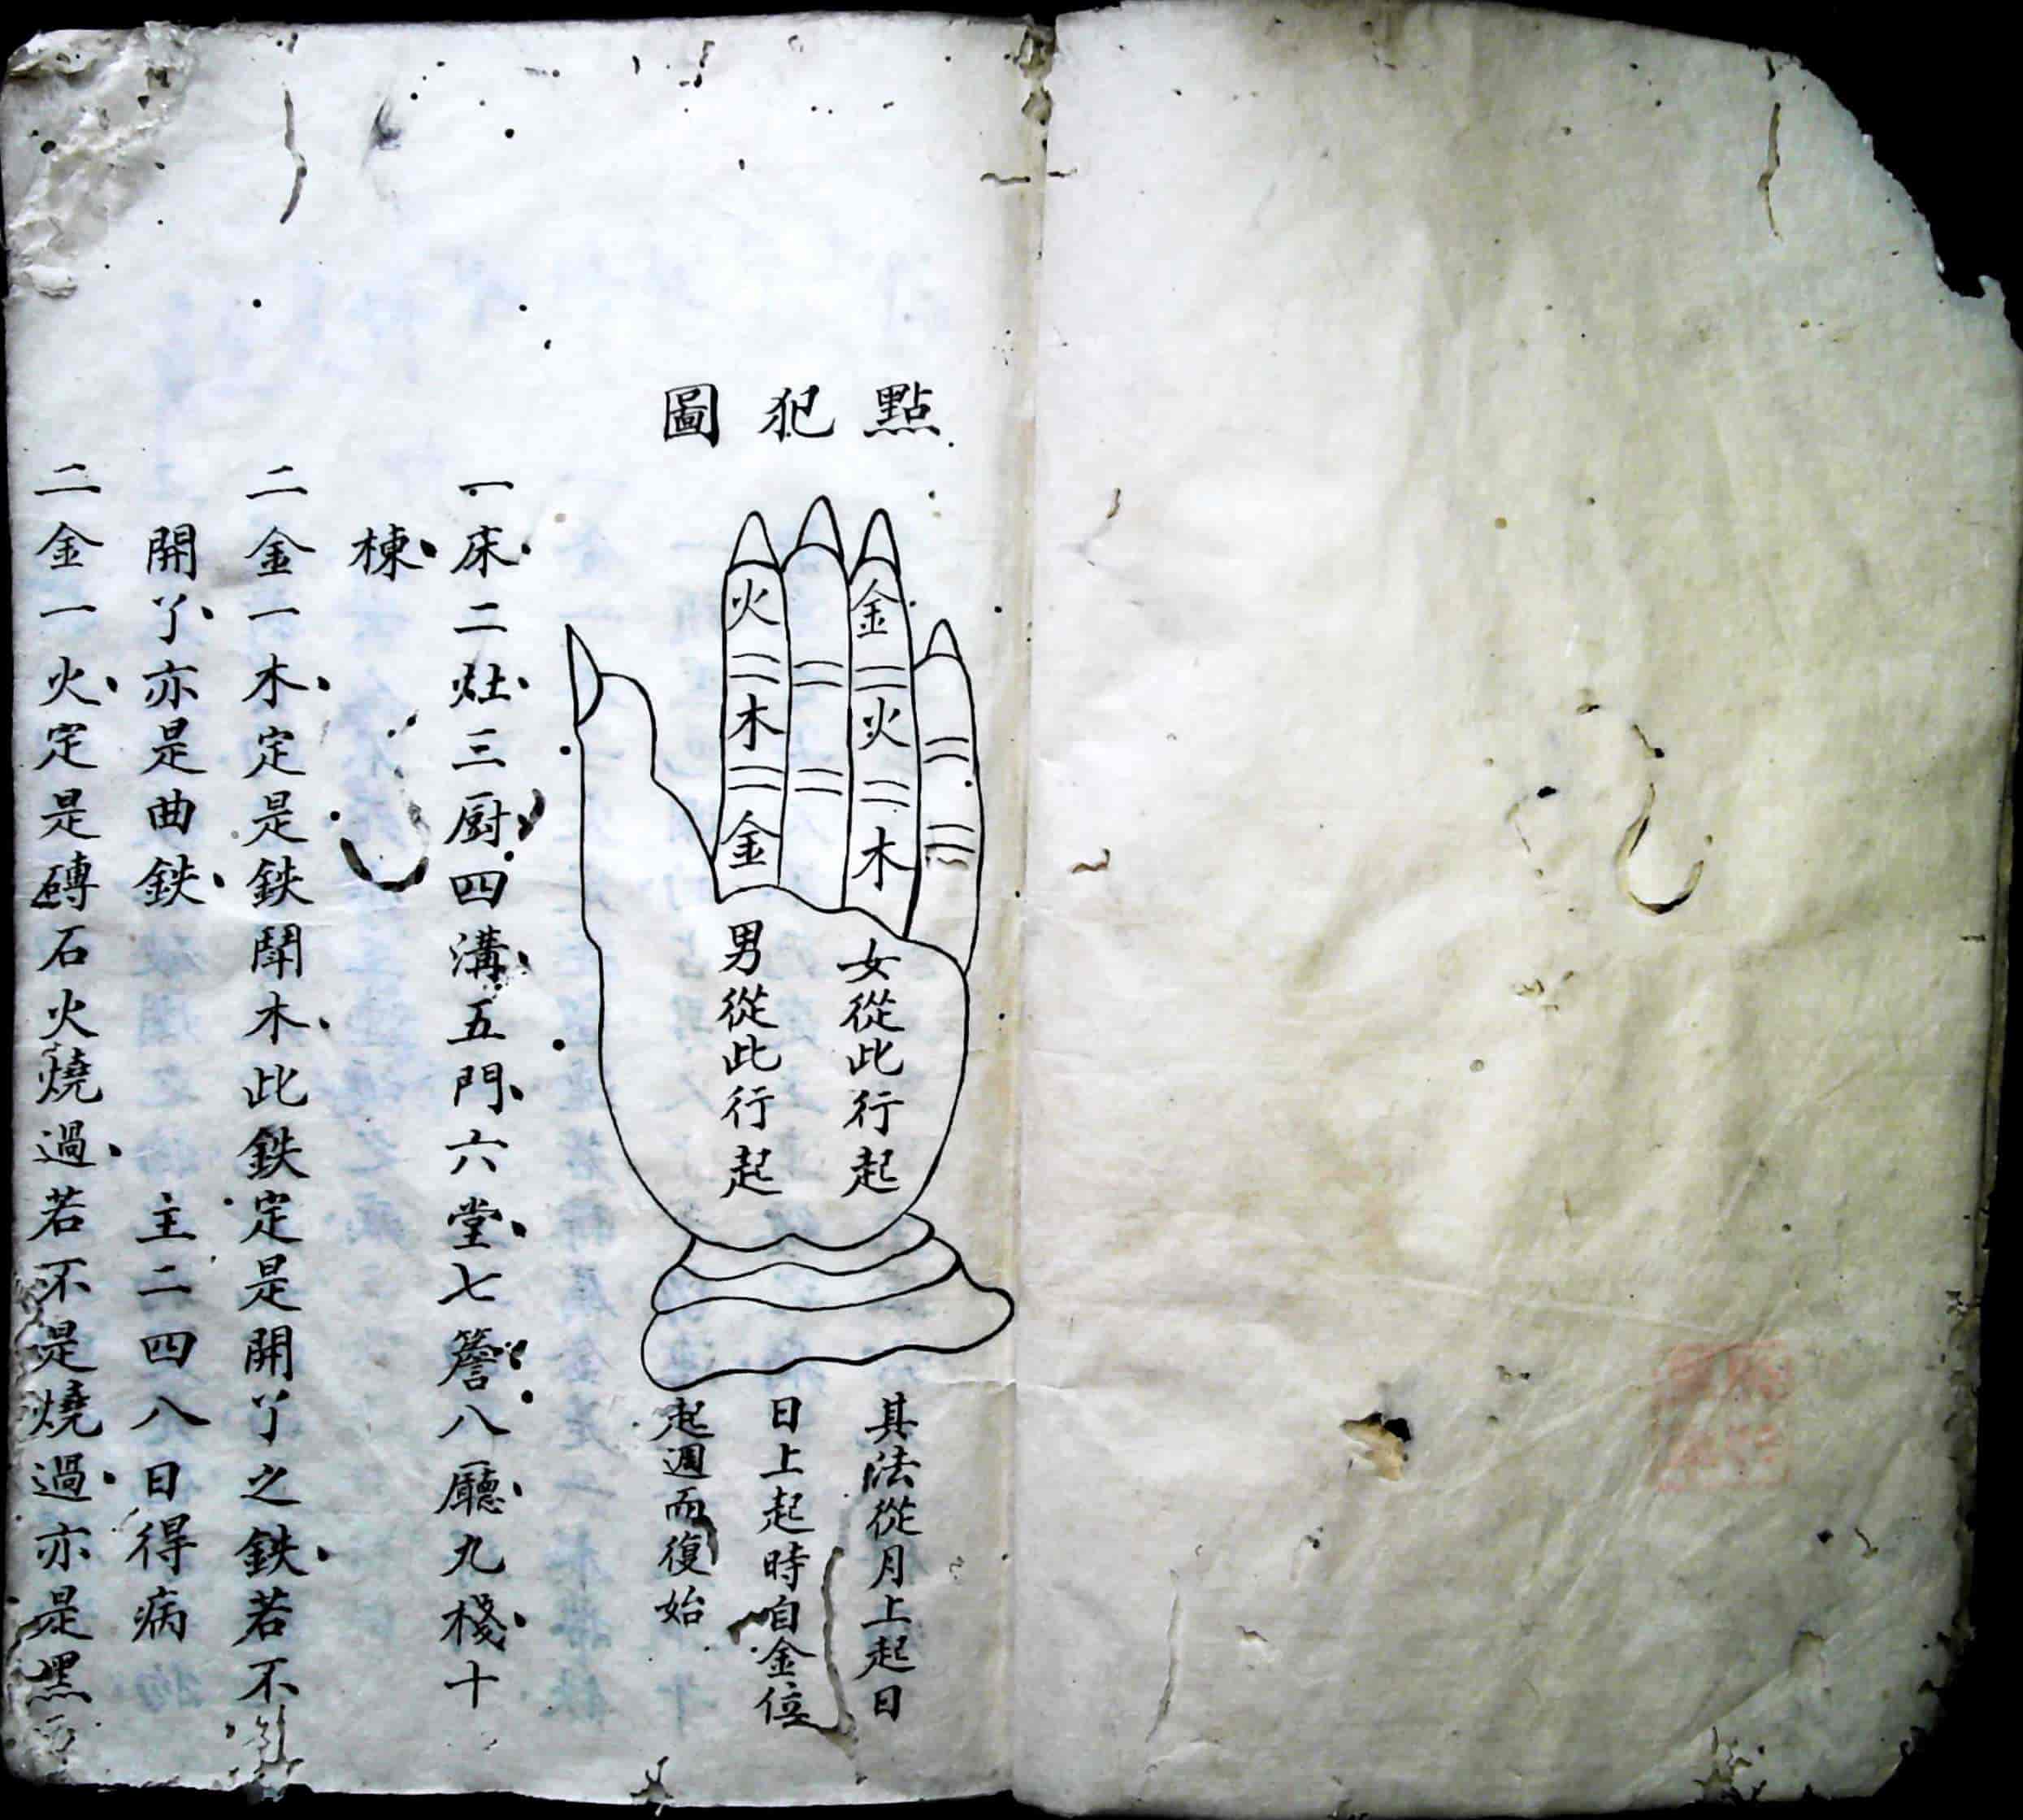 點犯圖
金
火
木
火
木
金
女從此行起
男從此行起
其法從月上起日
日上起時自金位
起週而復始
一床二灶三厨四溝五門六堂七簷八廳九棧十
棟
二金一木定是鉄鬪木此鉄定是開丫之鉄若不
開丫亦是曲鉄 主二四八日得病
二金一火定是磚石火燒過若不是燒過亦是黑